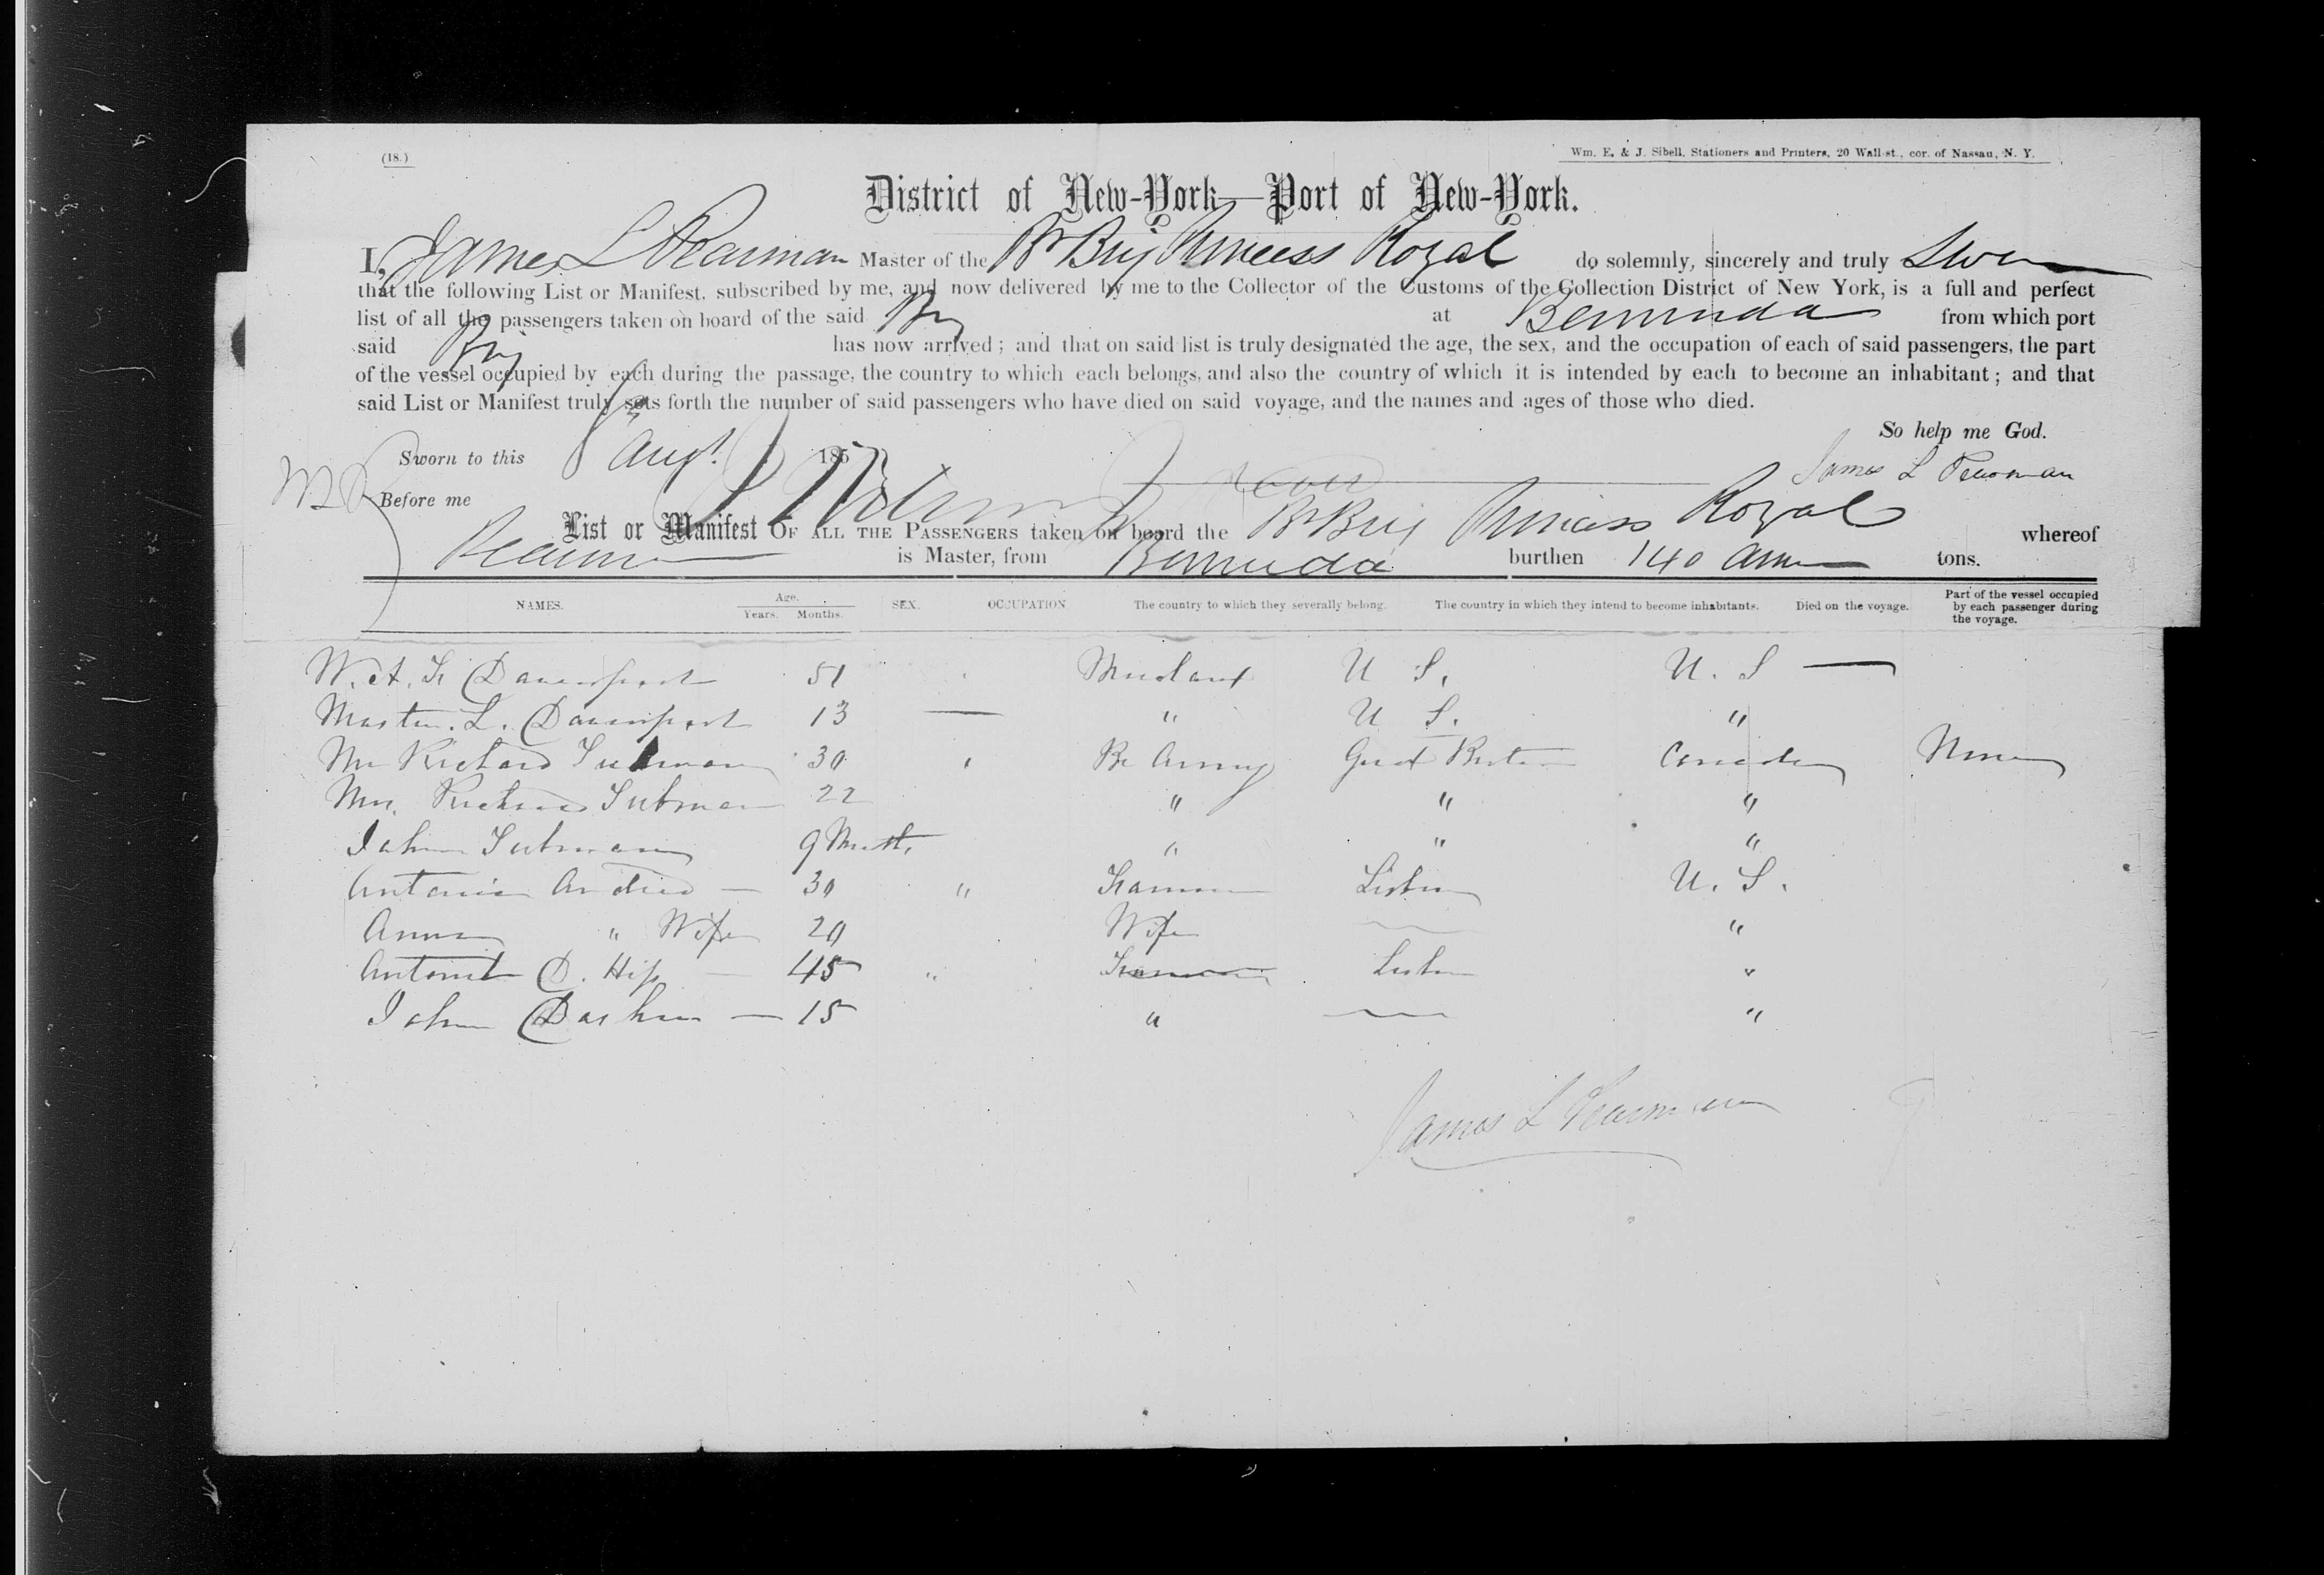 (18.)
Wm. E. & J. Sibell, Stationers and Printers, 20 Wall-st., cor. of Nassau, N. Y.
District of New-York—Port of New-York.
I, James L Pearman Master of the Br Brig Princess Royal do solemnly, sincerely and truly Swear
that the following List or Manifest, subscribed by me, and now delivered by me to the Collector of the Customs of the Collection District of New York, is a full and perfect
list of all the passengers taken on board of the said Brig at Bermuda from which port
said Brig has now arrived; and that on said list is truly designated the age, the sex, and the occupation of each of said passengers, the part
of the vessel occupied by each during the passage, the country to which each belongs, and also the country of which it is intended by each to become an inhabitant; and that
said List or Manifest truly sets forth the number of said passengers who have died on said voyage, and the names and ages of those who died.
So help me God.
Sworn to this Augt 185
James L Pearman
Before me
List or Manifest OF ALL THE PASSENGERS taken on board the Br Brig Princess Royal whereof
Pearman is Master, from Bermuda burthen 140 tons.
NAMES. Age. Years. Months. SEX. OCCUPATION The country to which they severally belong. The country in which they intend to become inhabitants. Died on the voyage. Part of the vessel occupied by each passenger during the voyage.
W. A. Davenport 51 U S. U. S —
Master. L. Davenport 13 — " U S. "
Mr Richard 30 Br Army Great Britain Canada
Mrs. Richard 22 " " "
John 9 " " "
Antonio 30 " Lisbon U. S.
Anna " Wife 20 Wife "
D. Hip — 45 " Lisbon "
John — 15 " "
James L Pearman